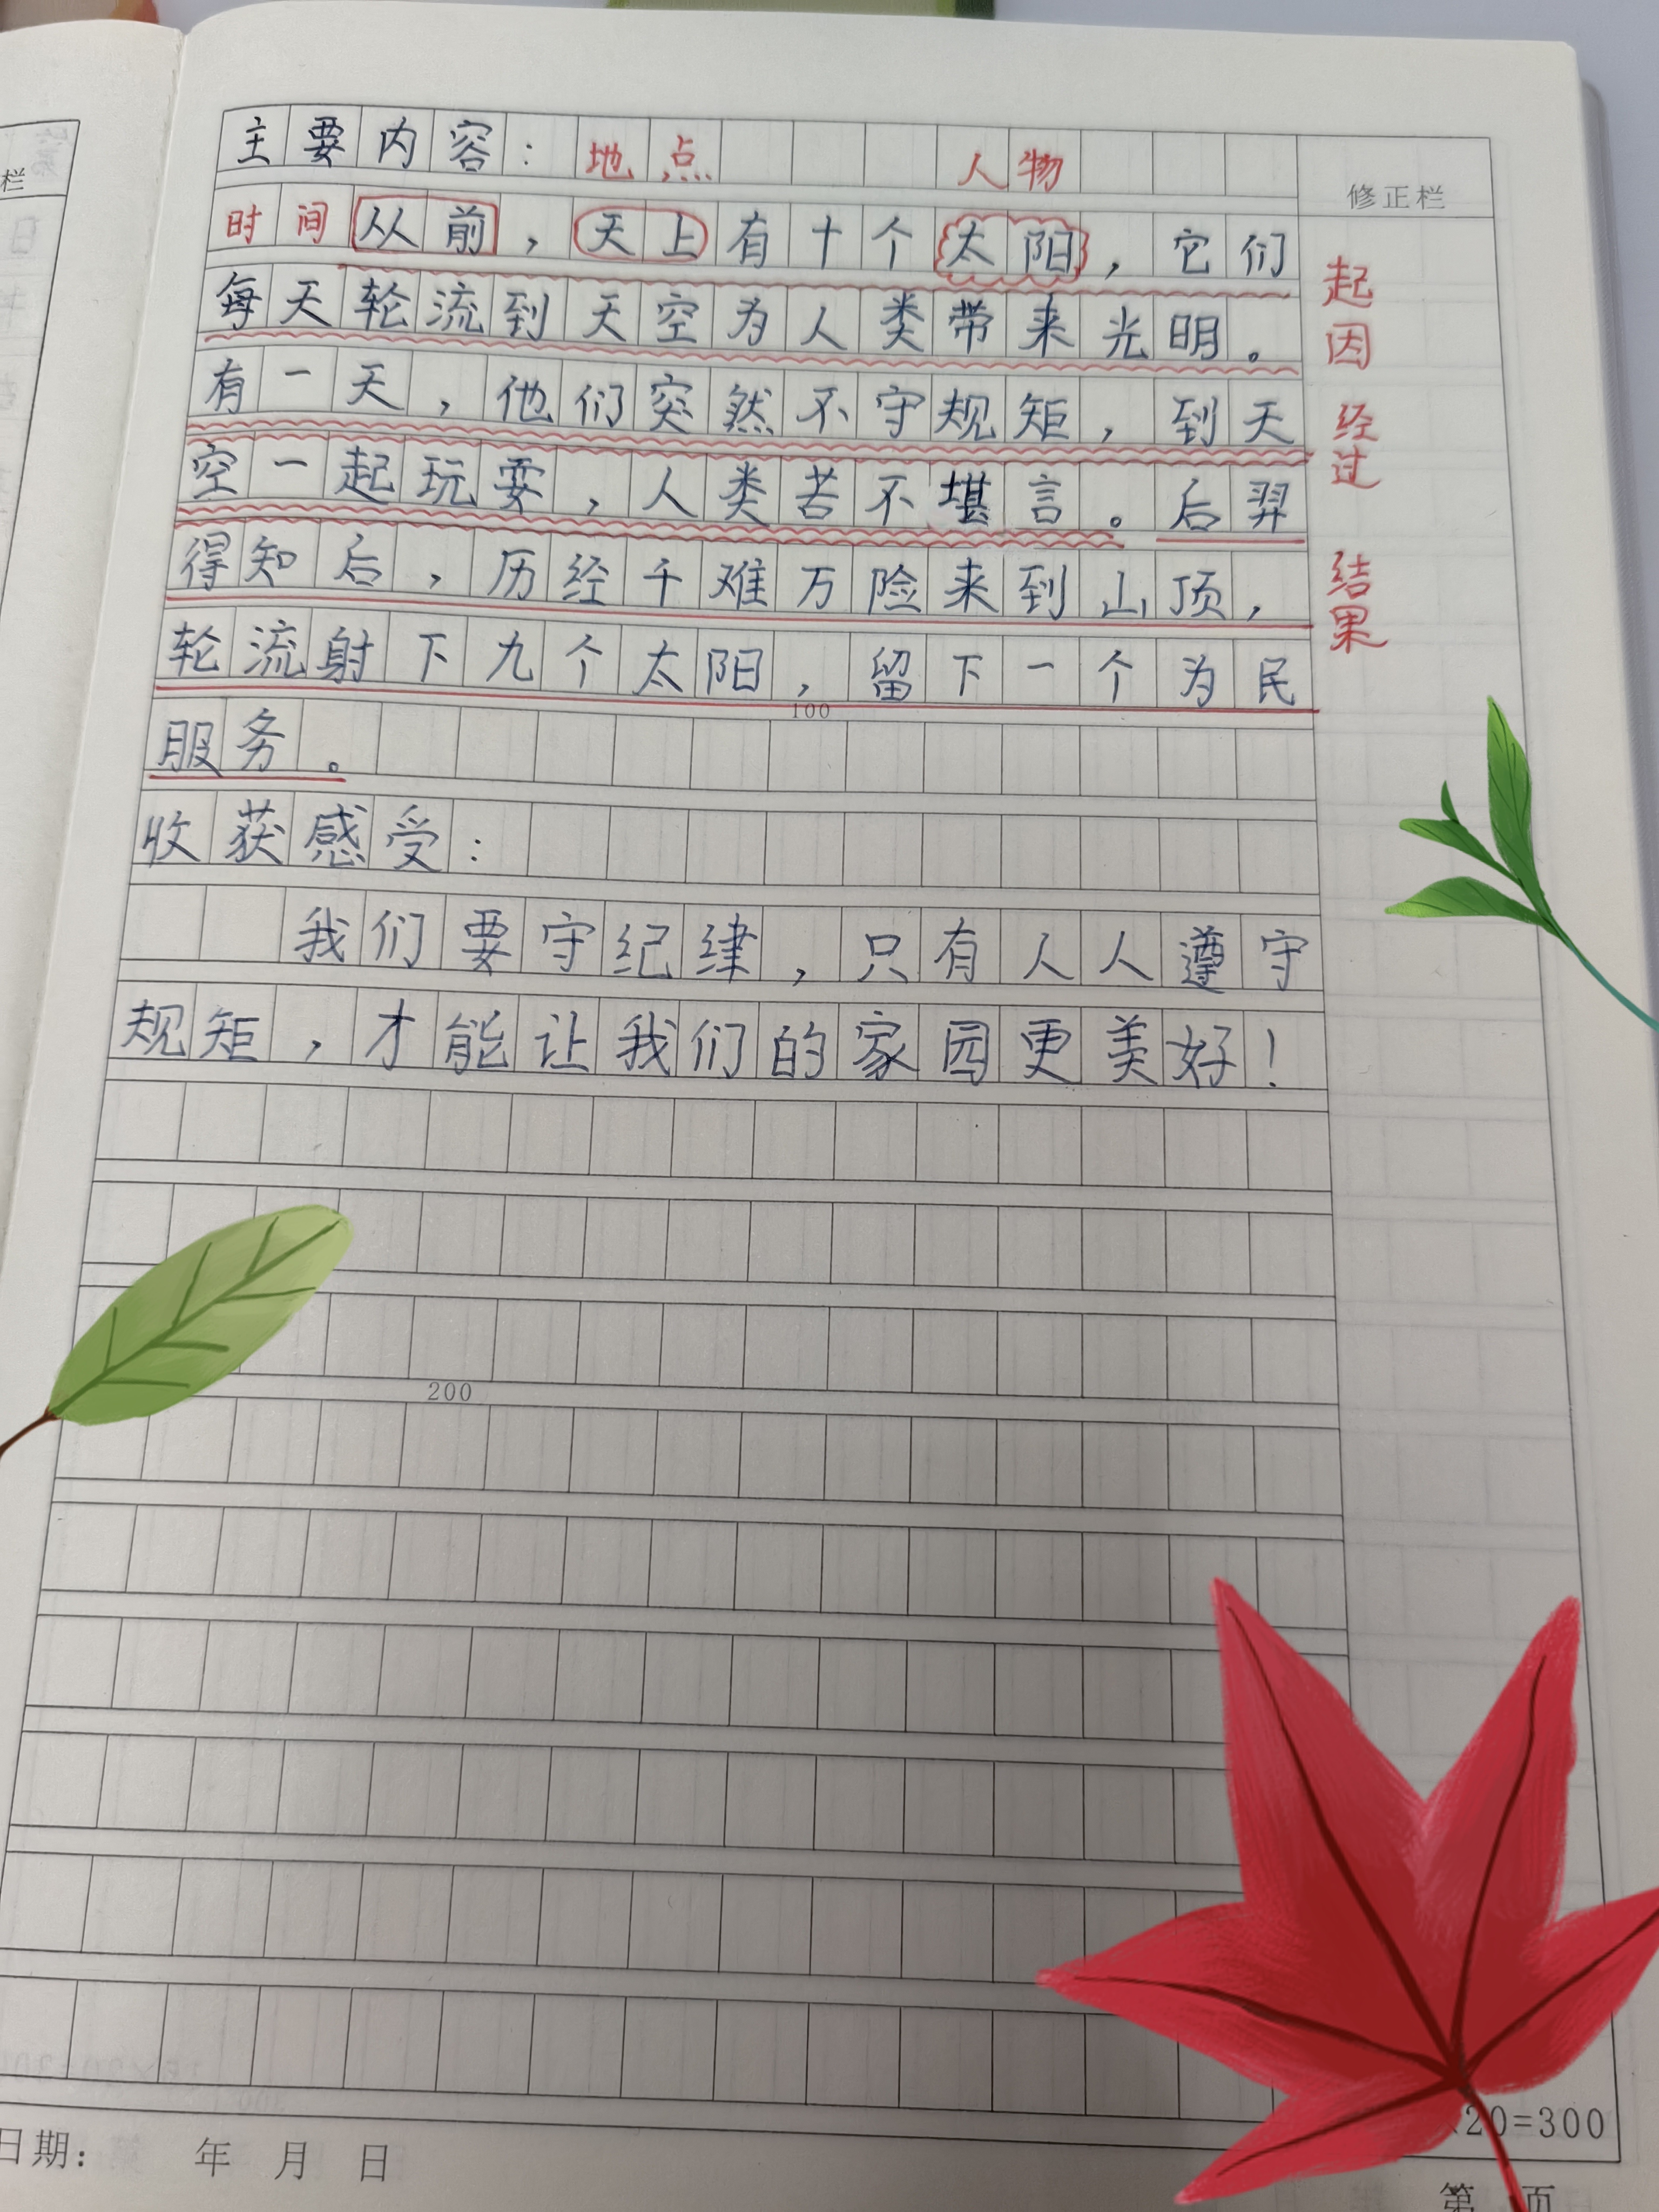 主要内容：地点 人物
修正栏
时间从前，天上有十个太阳，它们
每天轮流到天空为人类带来光明。
有一天，他们突然不守规矩，到天
空一起玩耍，人类苦不堪言。后羿
得知后，历经千难万险来到山顶，
轮流射下九个太阳，留下一个为民
100
服务。
收获感受：
我们要守纪律，只有人人遵守
规矩，才能让我们的家园更美好！
起因
经过
结果
200
20=300
日期： 年 月 日
第 页
栏